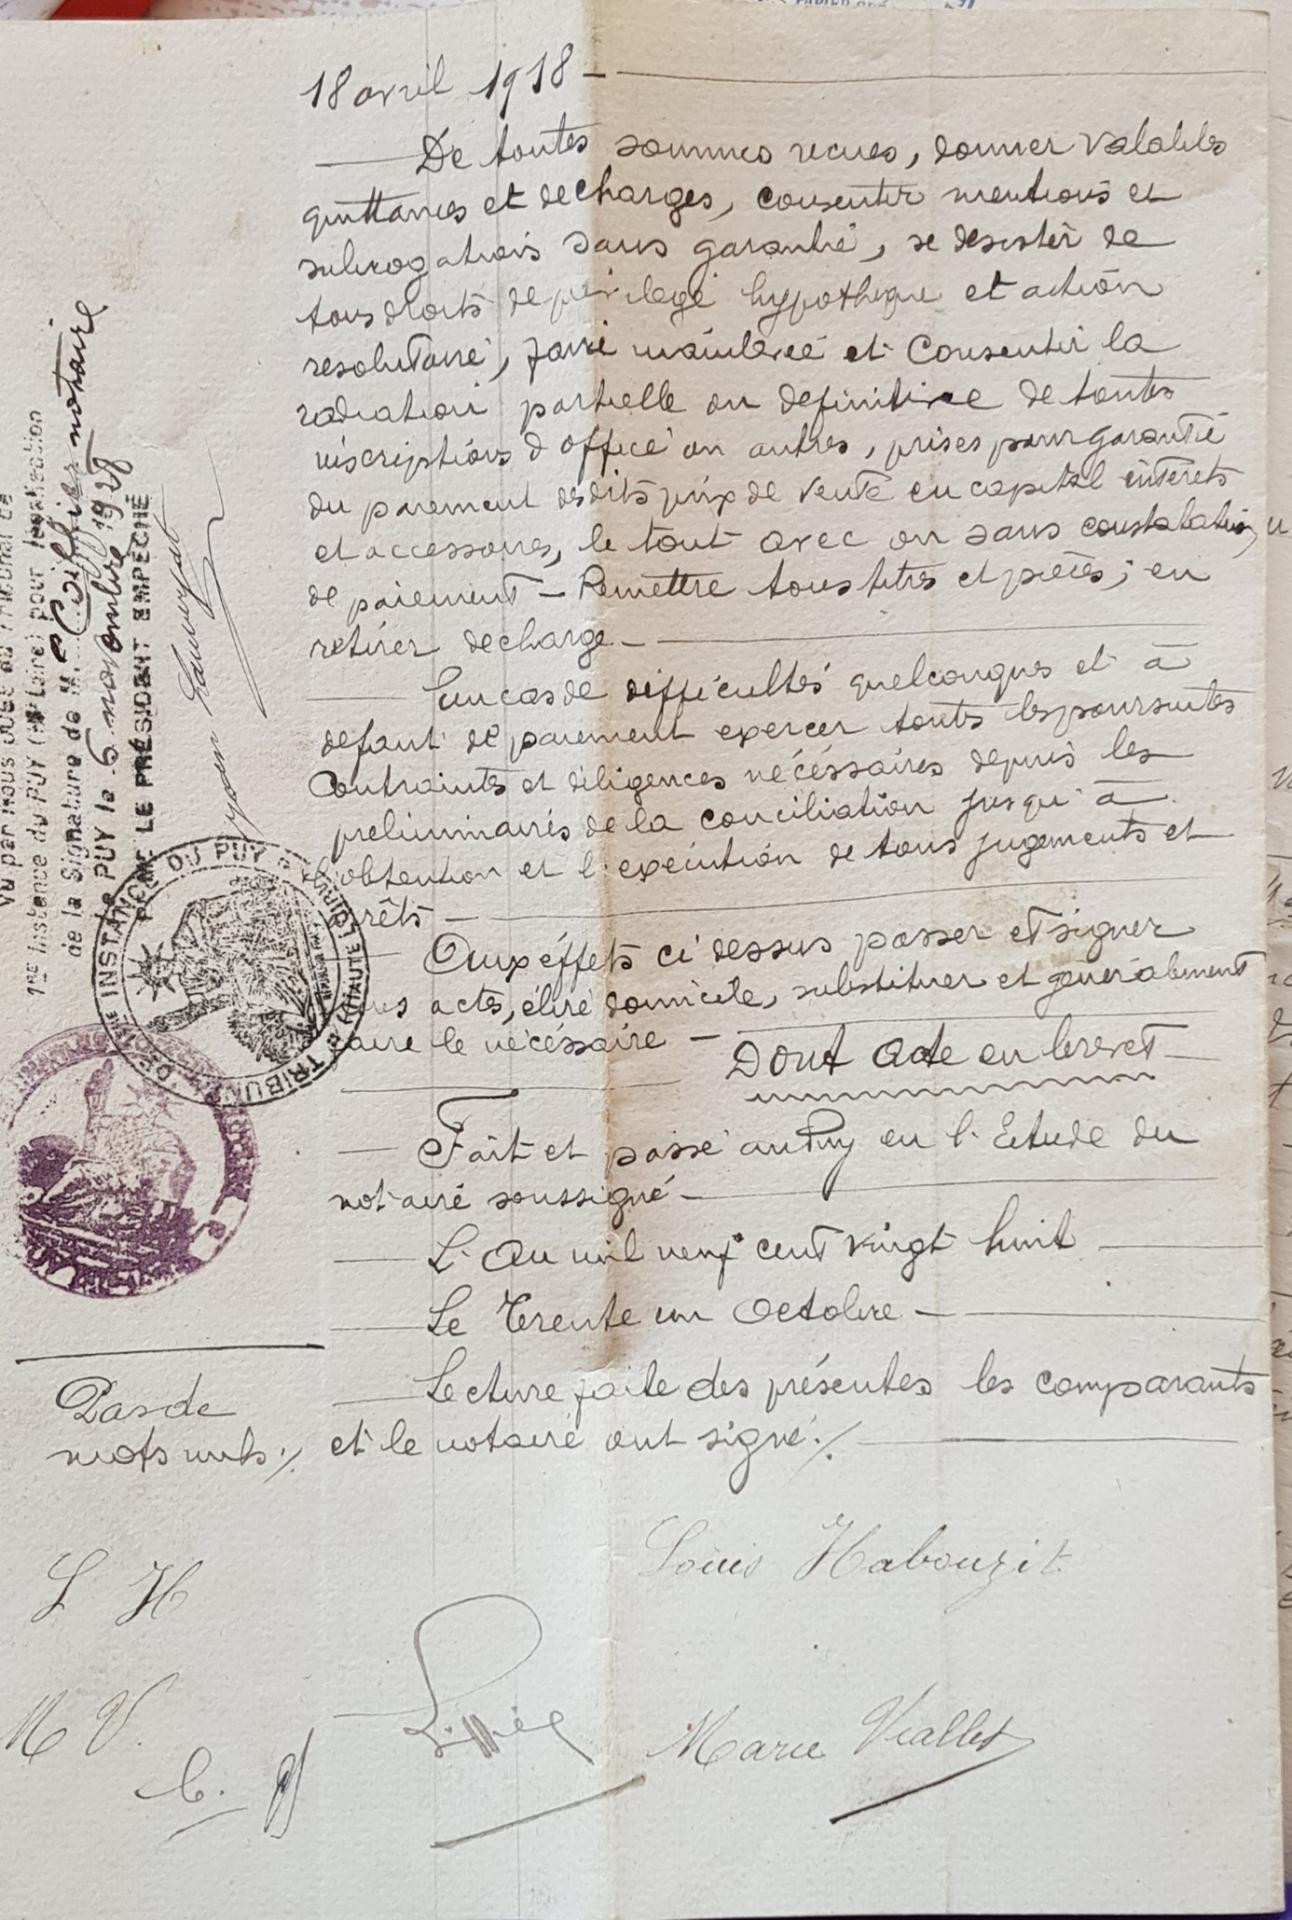 18 avril 1918 —
De toutes sommes recues, donner valables
quittances et decharges, consentir mentions et
subrogations sans garantie, se desister de
tous droits de privilege hypotheque et action
resolutoire, faire mainlevée et Consentir la
radiation partielle ou definitive de toutes
inscriptions d'office ou autres, prises pour garantie
du paiement desdits prix de vente en capital intérêts
et accessoires, le tout avec ou sans constatation
de paiement — Remettre tous titres et pièces; en
retirer decharge —
En cas de difficultés quelconques et à
defaut de paiement exercer toutes les poursuites
Contraintes et diligences nécéssaires depuis les
preliminaires de la conciliation jusqu'à
l'obtention et l'exécution de tous jugements et
arrêts —
Aux éffets ci dessus passer et signer
tous actes, élire domicile, substituer et généralement
faire le nécéssaire —
Dont acte en brevet —
Fait et passé au Puy en l'Etude du
notaire soussigné —
L'An mil neuf cent vingt huit
Le Trente un Octobre —
Lecture faite des présentes les comparants
et le notaire ont signé ./.
Pas de
mots nuls ./.
Louis Habouzit
L H
Marie Viallet
M V.
Vu par nous Juge au Tribunal de
1re Instance du PUY (Hte Loire) pour légalisation
de la Signature de Me notaire
Le PUY le 6 novembre 1928
POUR LE PRÉSIDENT EMPÊCHÉ
TRIBUNAL DE 1ère INSTANCE DU PUY (HAUTE LOIRE)